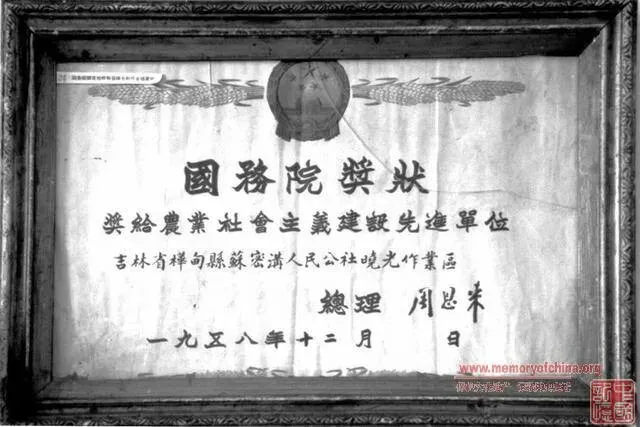 國務院獎狀
獎給農業社會主義建設先進單位
吉林省樺甸縣蘇密溝人民公社曉光作業區
總理 周恩來
一九五八年十二月 日
www.memoryofchina.org